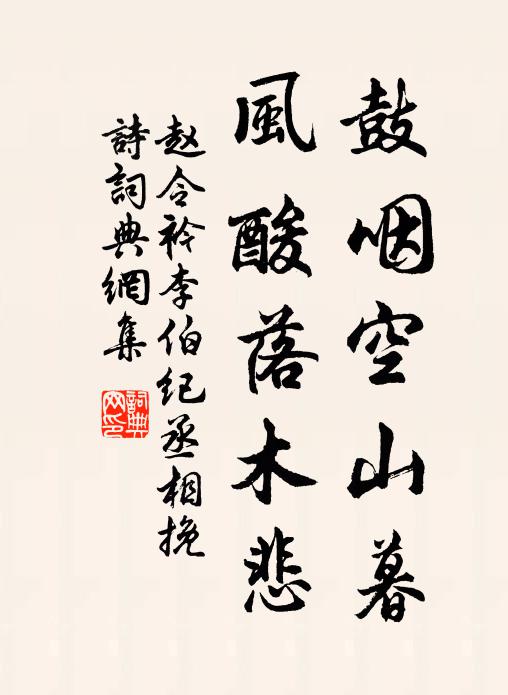 鼓咽空山暮
風酸落木悲
赵令衿李伯纪丞相挽
詩詞典網集
詞典
网印